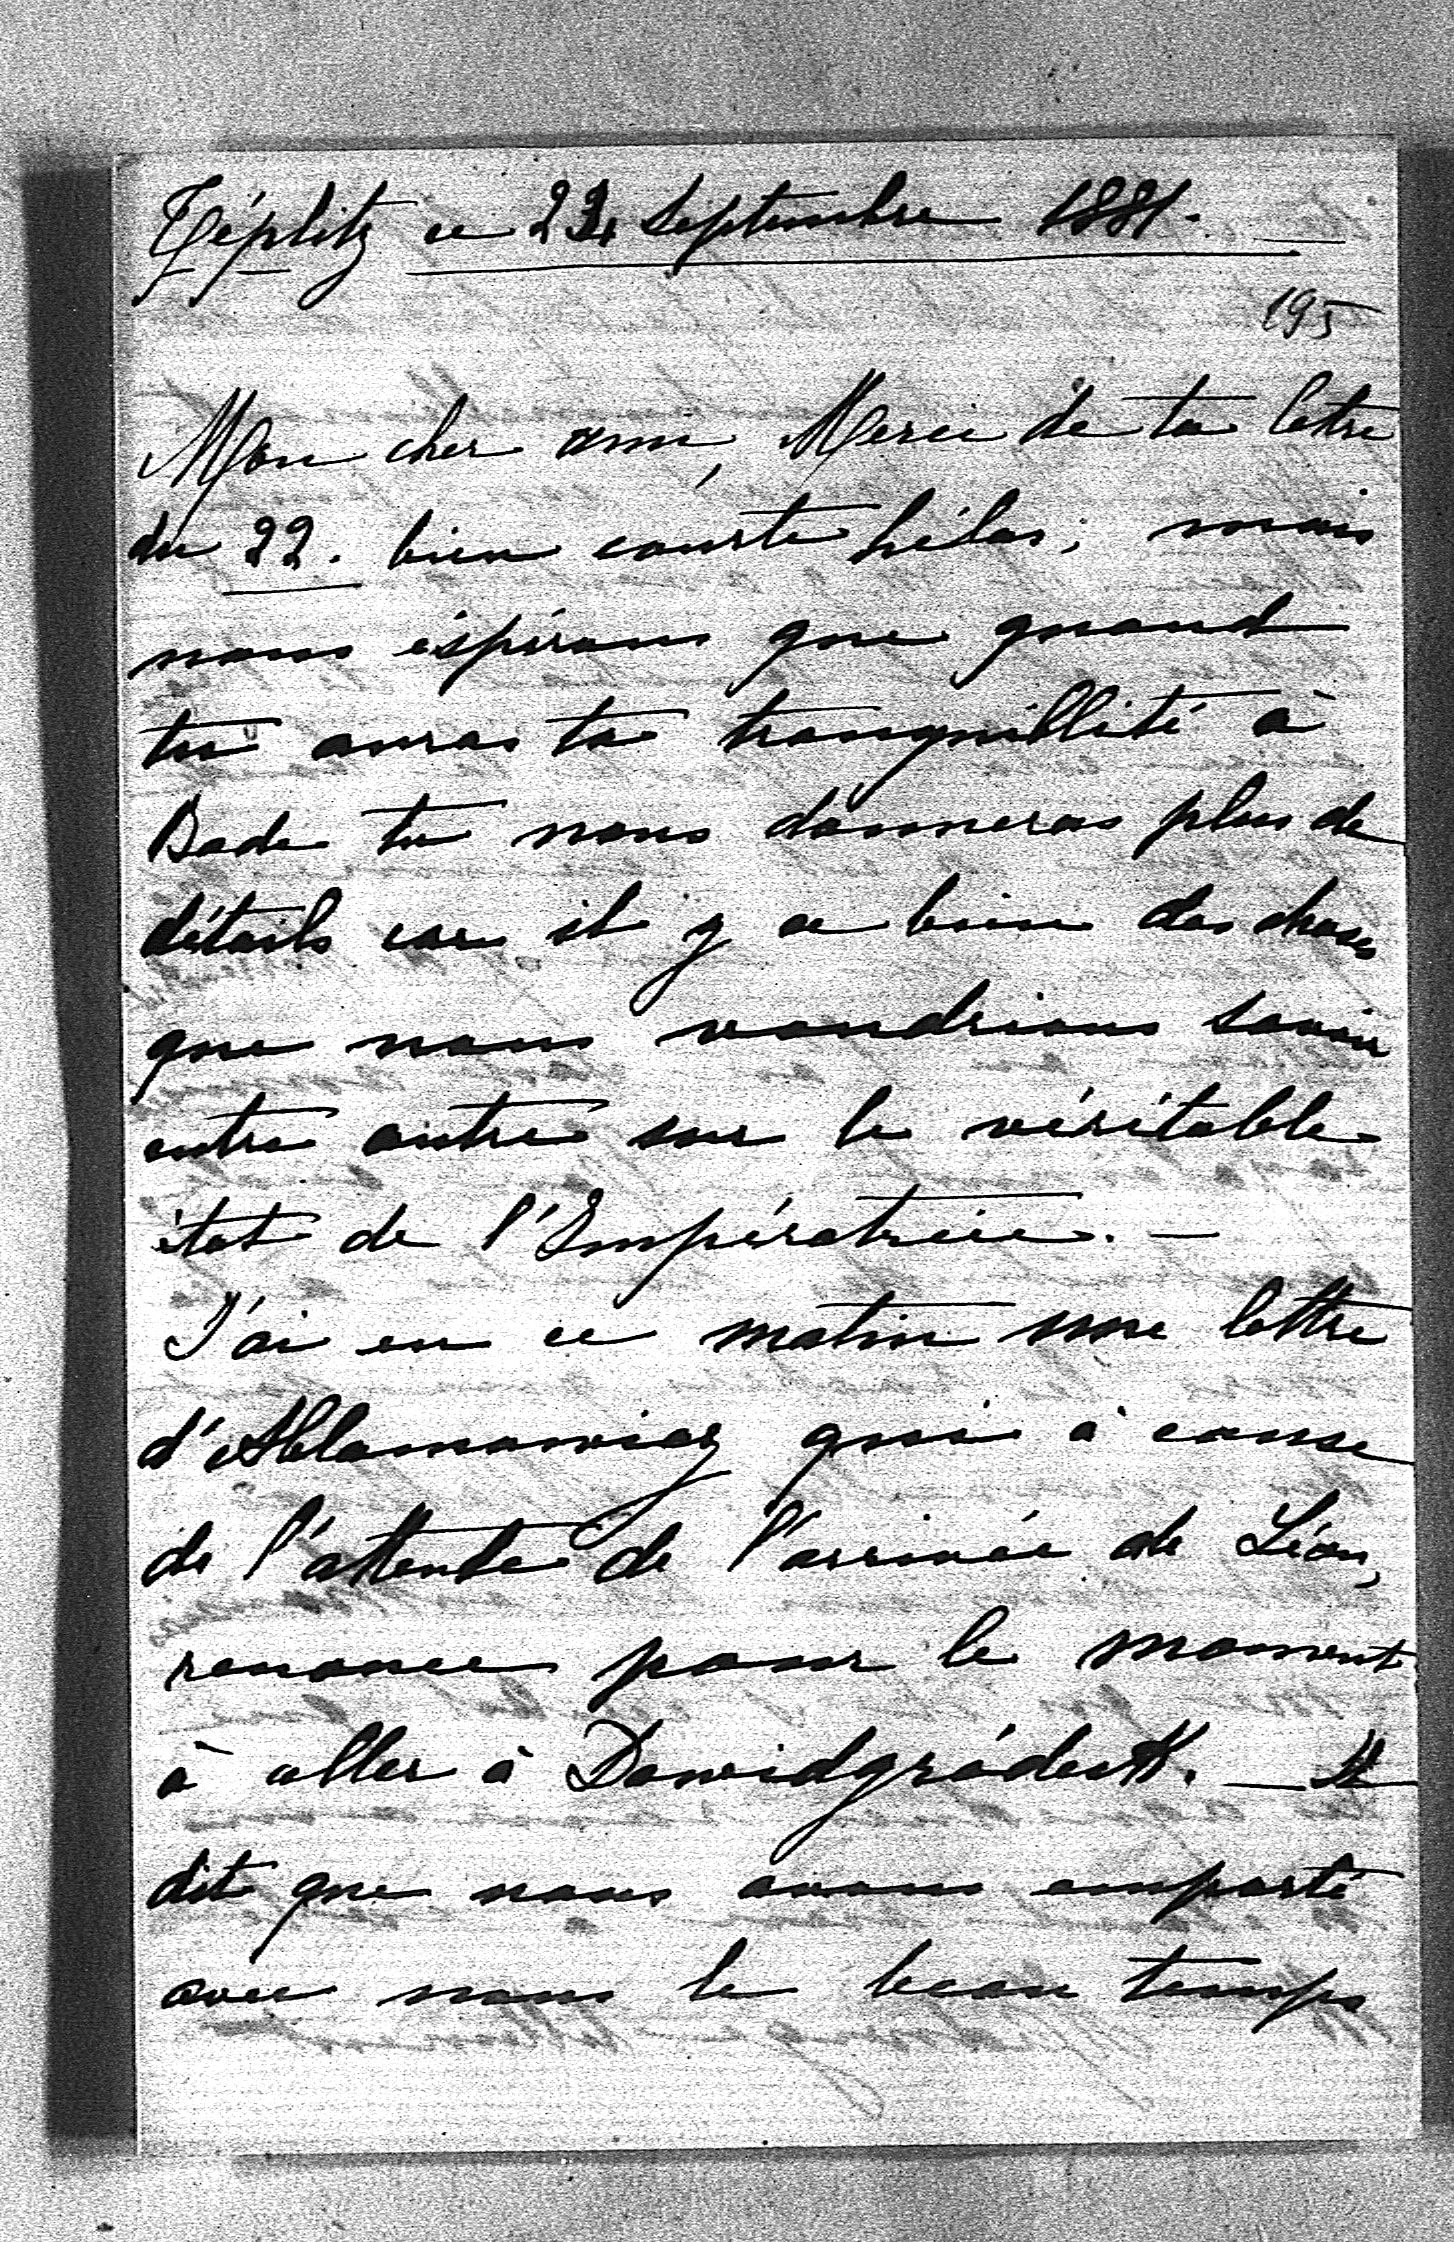 Téplitz ce 24 Septembre 1881.
195
Mon cher ami, Merci de ta lettre
du 22. bien courte hélas; mais
nous éspérons que quand
tu auras ta tranquillité à
Bade tu nous donneras plus de
détails car il y a bien des choses
que nous voudrions savoir
entre autre sur le véritable
état de l'Impératrice. —
J'ai eu ce matin une lettre
d'Ablamowicz qui à cause
de l'attente de l'arrivée de Léon,
renonce pour le moment
à aller à Dawidgródek. — Il
dit que nous avons emporté
avec nous le beau temps